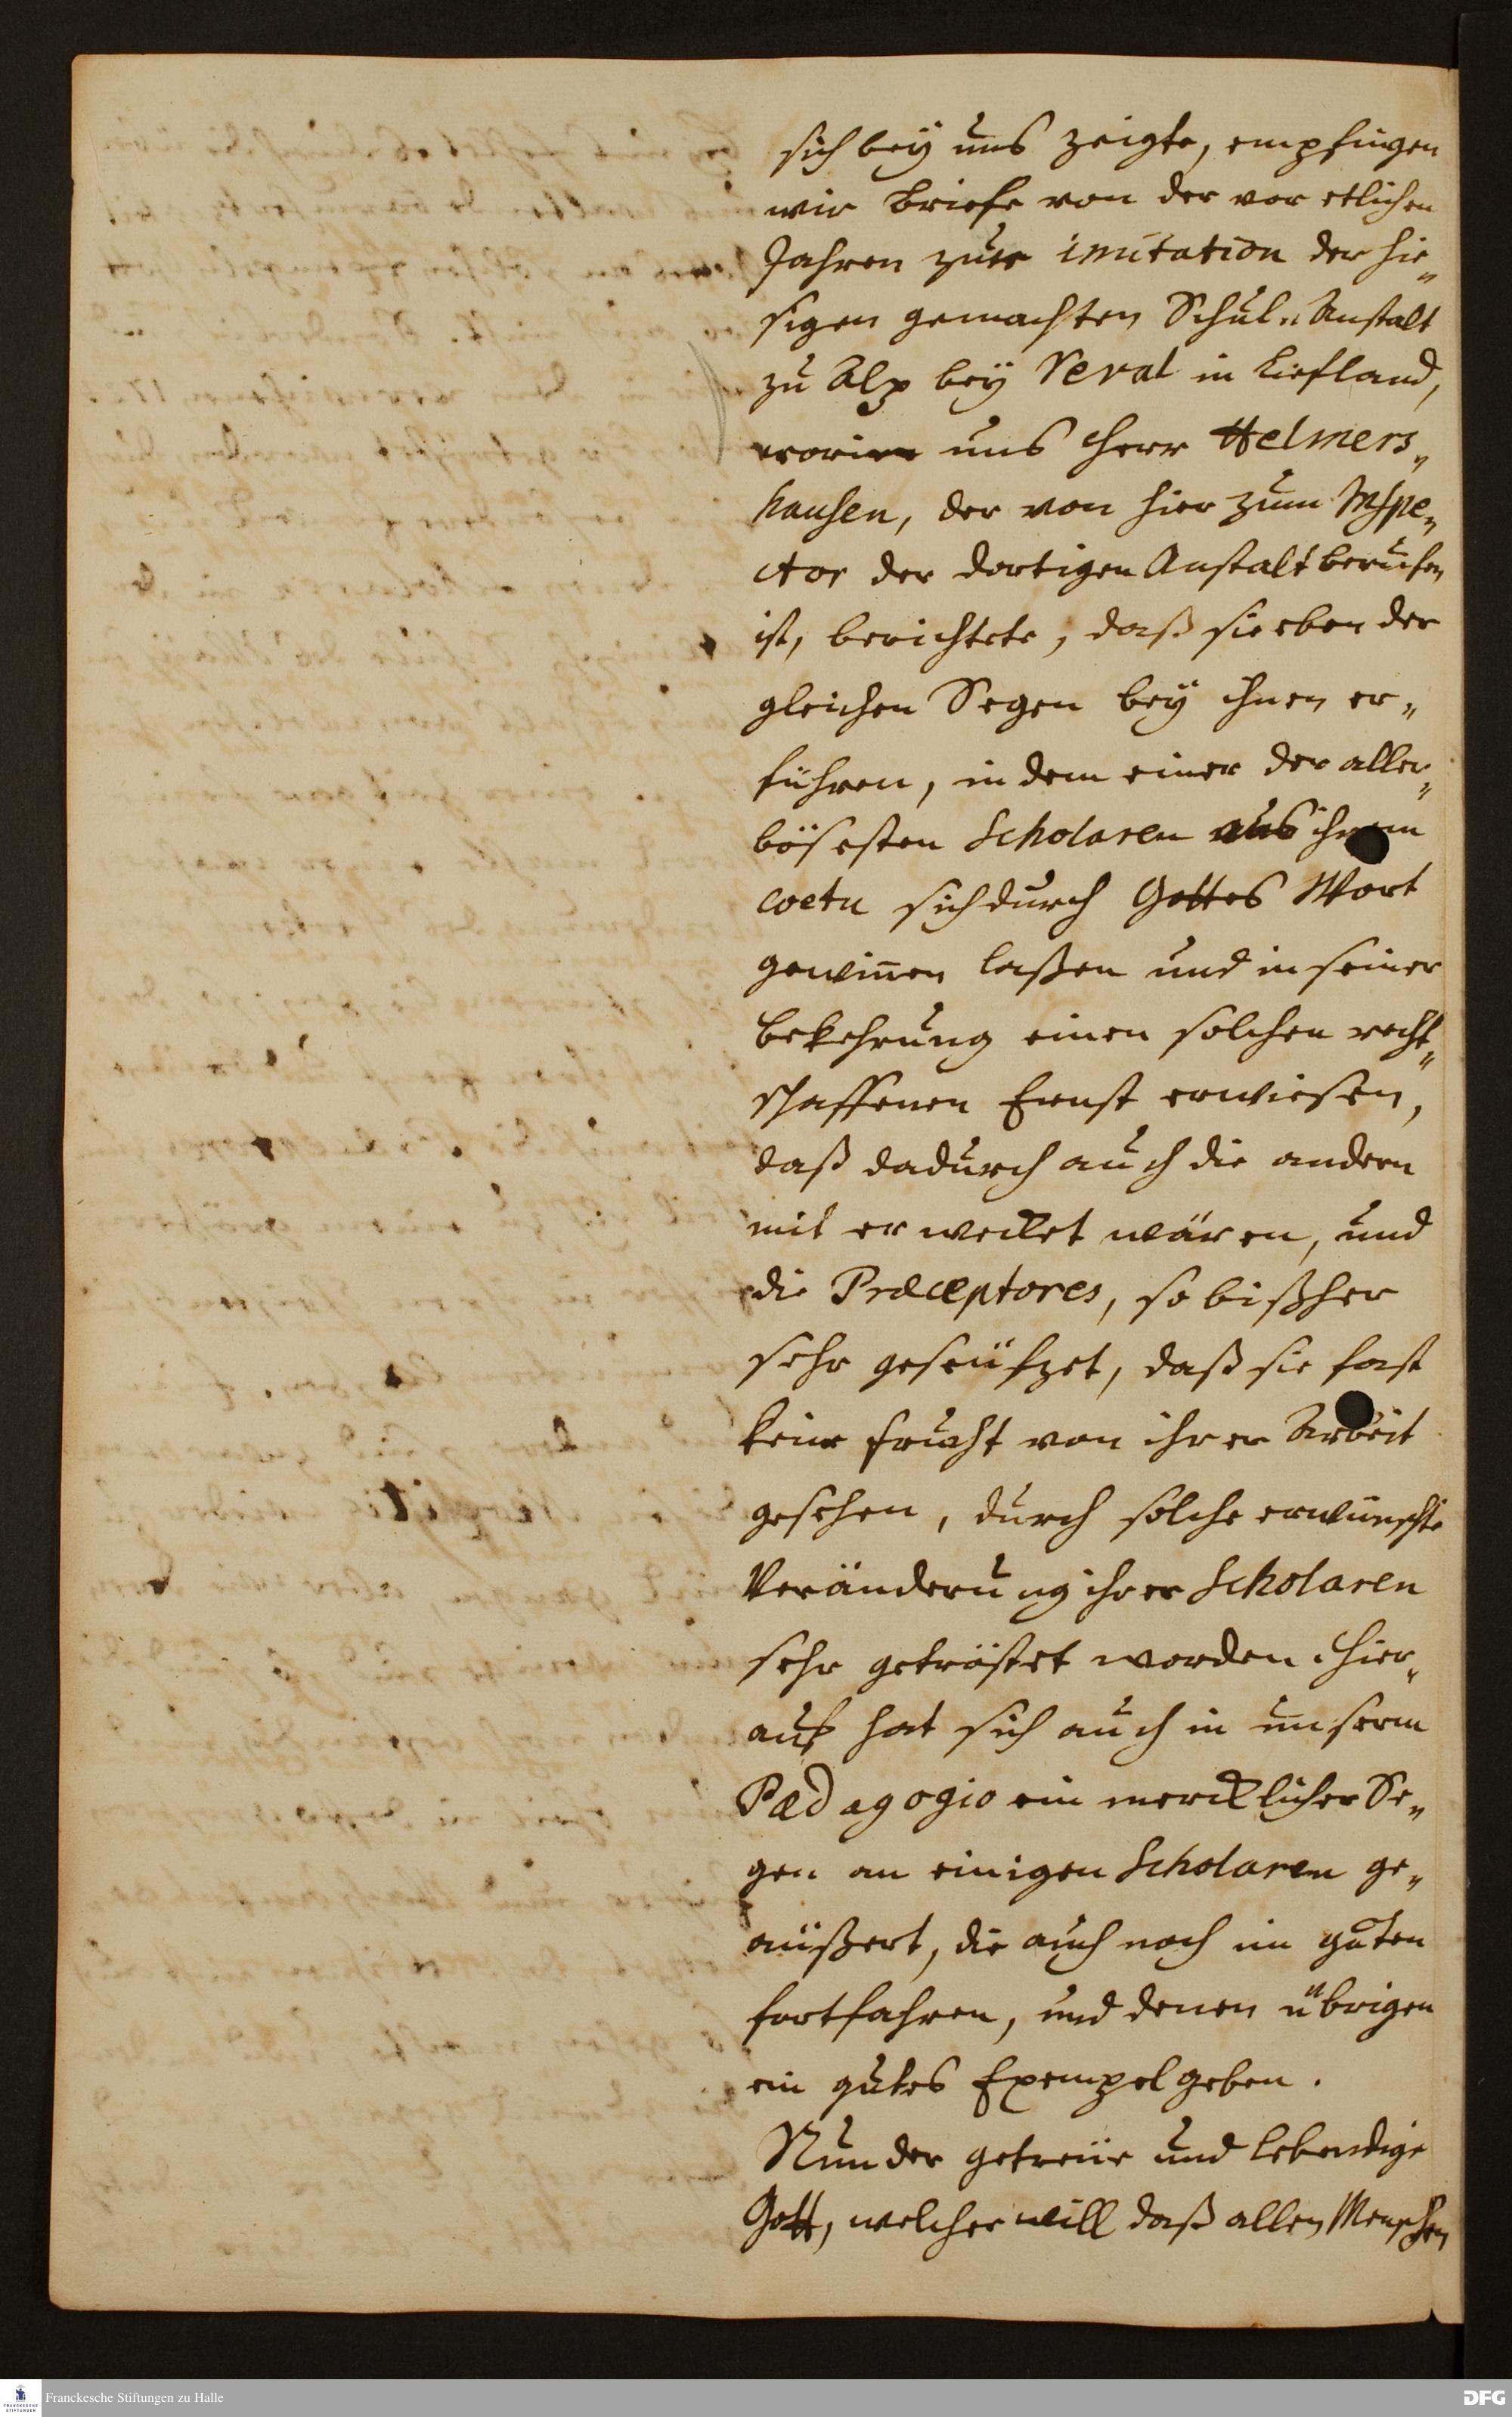 sich bey uns zeigte, empfingen
wir Briefe von der vor etlichen
Jahren zur imitation der hie„
sigen gemachten Schul„Anstalt
zu Alp bey Reval in Liefland,
worin uns Herr Helmers„
hausen, der von hier zum Inspe„
ctor der dortigen Anstalt beruffen
ist, berichtete, daß sie eben der
gleichen Segen bey ihnen er„
führen, in dem einer der aller„
bösesten Scholaren aus ihrem
coetu sich durch Gottes Wort
gewinnen laßen und in seiner
bekehrung einen solchen recht„
schaffenen Ernst erwiesen,
daß dadurch auch die andern
mit erwecket wären, und
die Præceptores, so bißher
sehr geseüfzet, daß sie fast
keine frucht von ihrer Arbeit
gesehen, durch solche erwünschte
Veränderung ihrer Scholaren
sehr getröstet worden. Hier„
auf hat sich auch in unserm
Pædagogio ein mercklicher Se„
gen an einigen Scholaren ge„
äüßert, die auch noch im guten
fortfahren, und denen übrigen
ein gutes Exempel geben.
Nun der getreüe und lebendige
Gott, welcher will daß allen Menschen
Franckesche Stiftungen zu Halle
FRANCKESCHE STIFTUNGEN
DFG